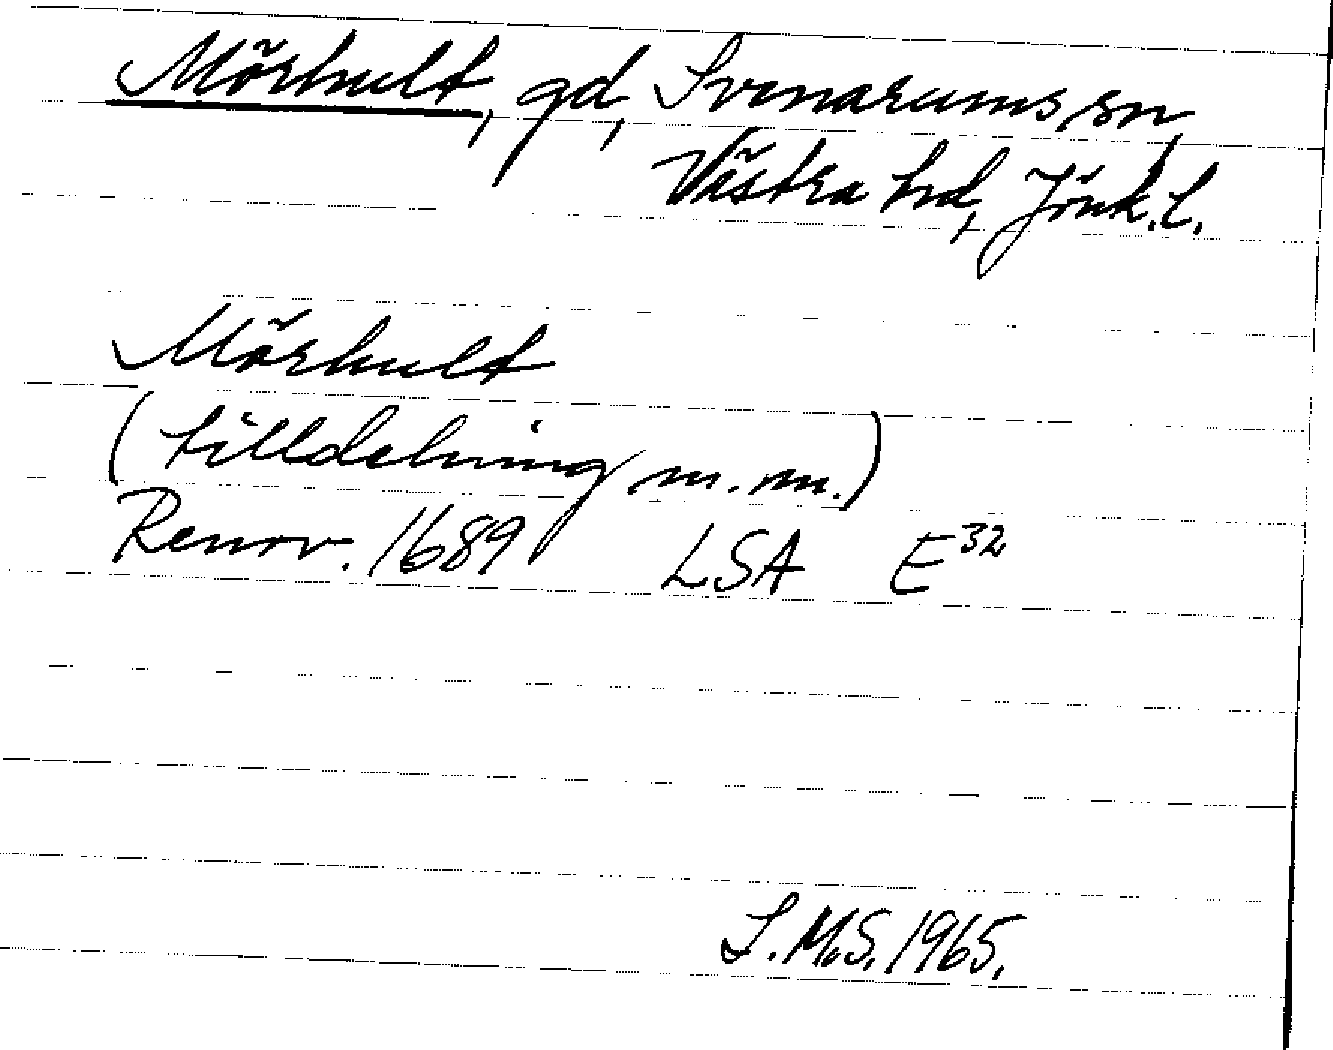 Mörhult, gd, Svenarums sn,
Västra hd, Jönk. l.
Mörhult
(tilldelning m.m.)
Renov. 1689 LSA E32
S.M.S. 1965.